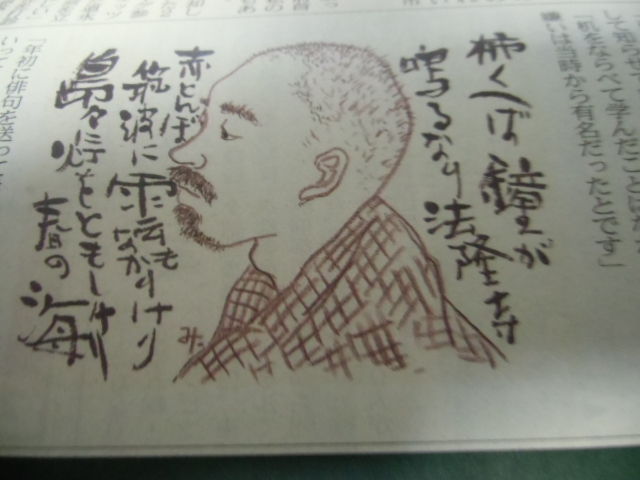 「机をならべて学んだことはかな
嫌いは当時から有名だったとです」
柿くへば鐘が
鳴るなり法隆寺
赤とんぼ
筑波に雲もなかりけり
島々に灯をともしけり
春の海
みた
「年初に俳句を送って